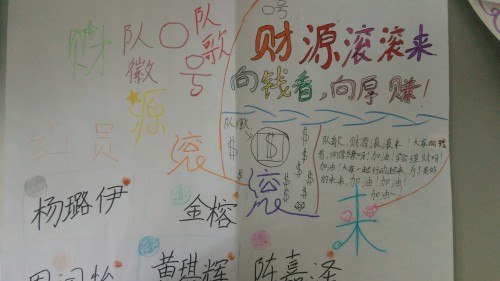 队歌
队徽
口号
财源滚滚来
向钱看,向厚赚!
财
源
滚
滚
来
组员
队徽
$
队歌:财源滚滚来!大家向钱
看,向厚赚呀!加油!学会理财呀!
加油!大家一起行动起来,为了美好
的未来,加油 加油!
加油~
杨璐伊
金榕
黄琪辉
陈嘉泽